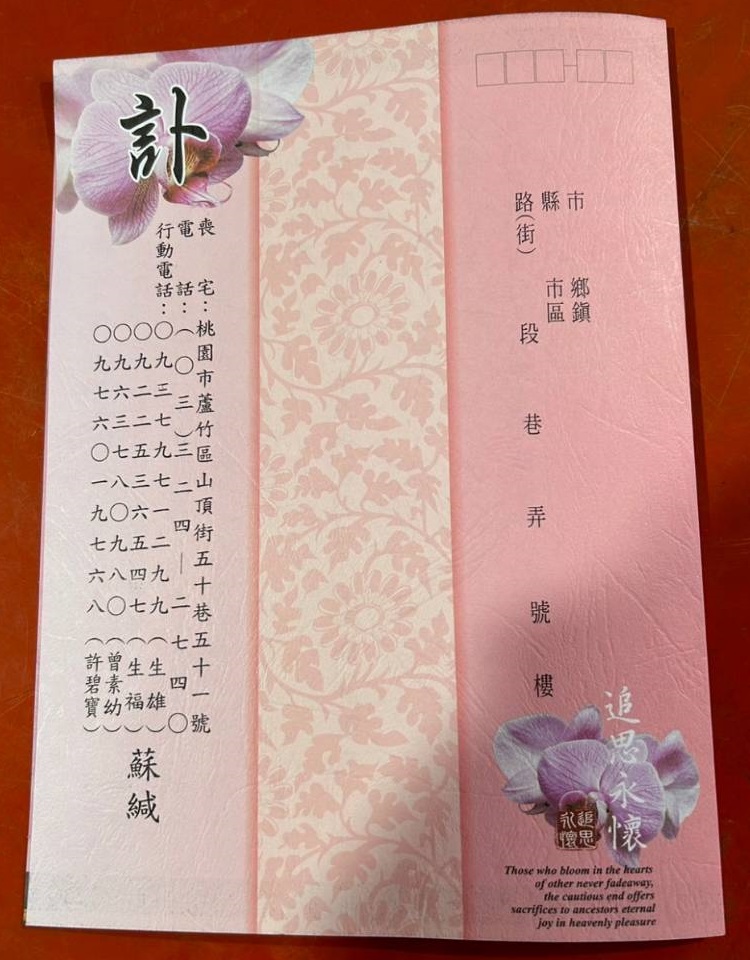 市 鄉鎮
縣 市區
路(街) 段 巷 弄 號 樓
追思永懷
追思永懷
Those who bloom in the hearts
of other never fadeaway,
the cautious end offers
sacrifices to ancestors eternal
joy in heavenly pleasure
訃
喪 宅:桃園市蘆竹區山頂街五十巷五十一號
電 話:(〇三)三二四—二七四〇
行動電話:〇九三七九七一二九九(生雄)
〇九二二五三六五四七(生福)
〇九六三七八〇九八〇(曾素幼)
〇九七六〇一九七六八(許碧寶)
蘇緘